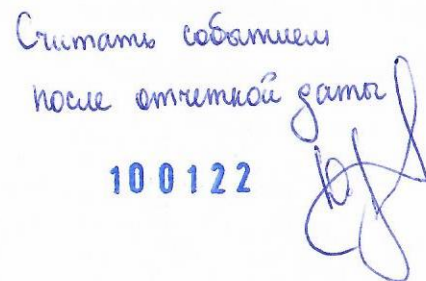 Считать событием
после отчетной даты
100122